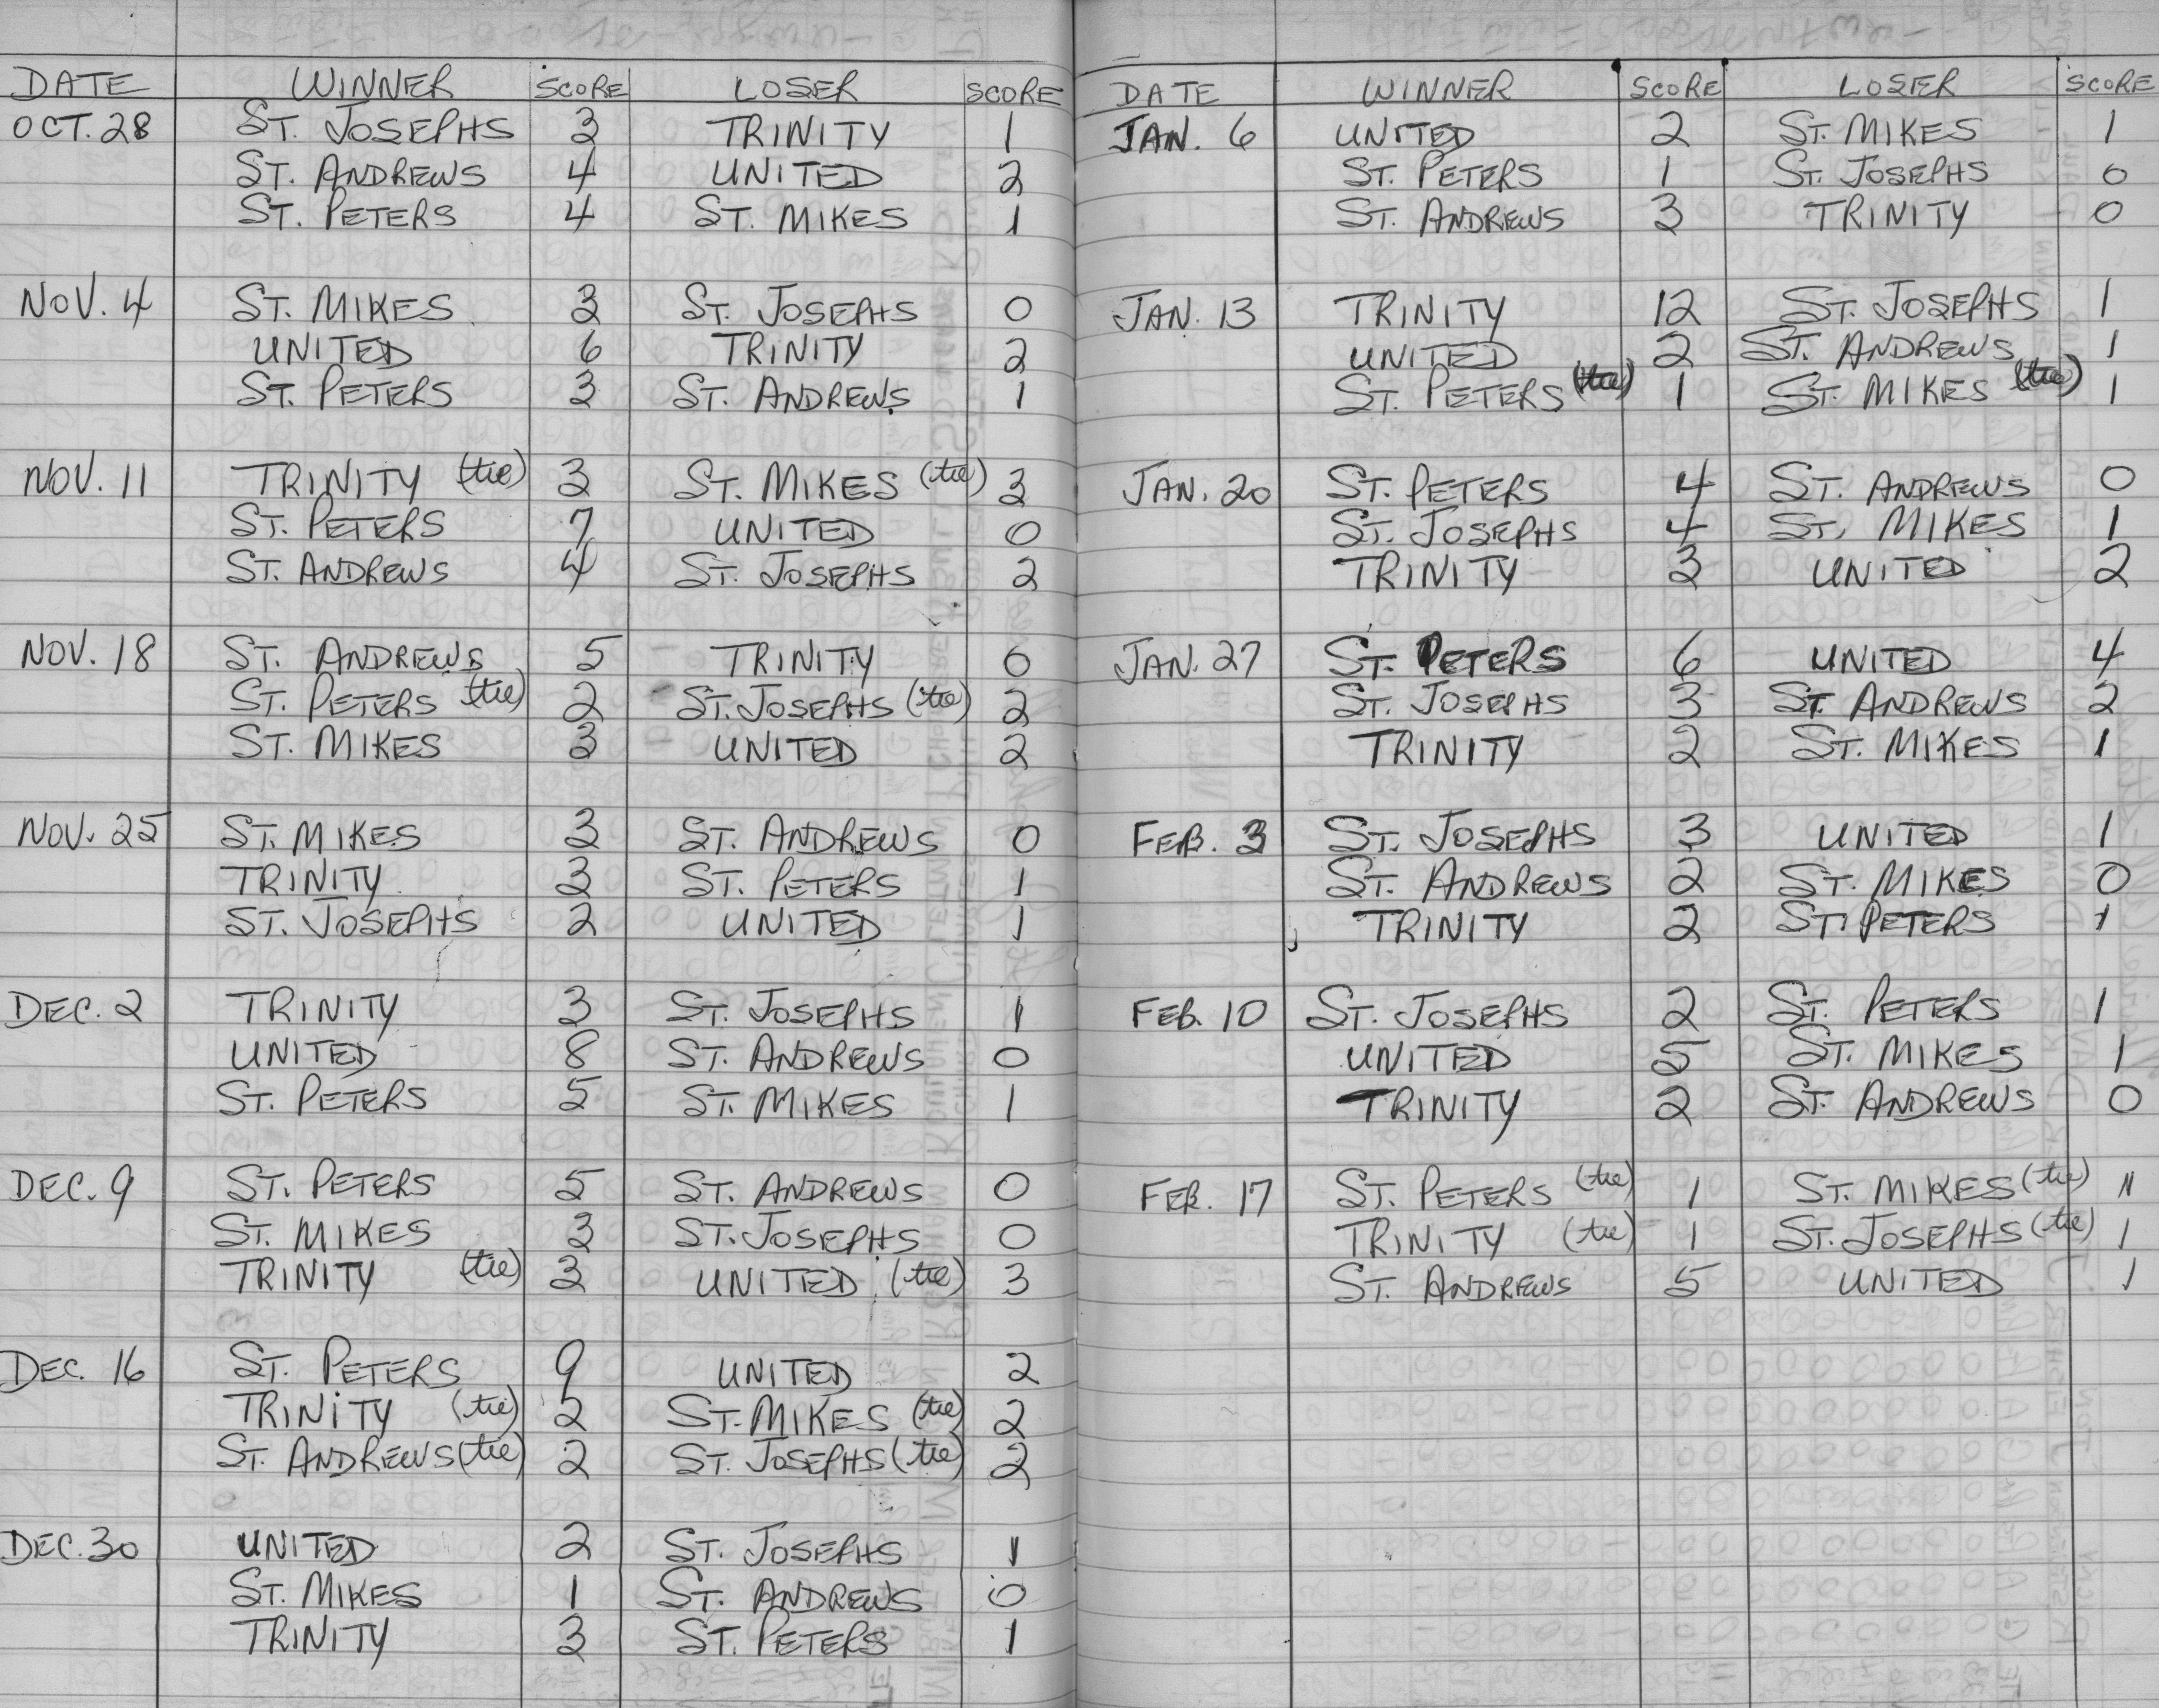 DATE WINNER SCORE LOSER SCORE
OCT. 28 ST. JOSEPHS 3 TRINITY 1
ST. ANDREWS 4 UNITED 2
ST. PETERS 4 ST. MIKES 1
NOV. 4 ST. MIKES 3 ST. JOSEPHS 0
UNITED 6 TRINITY 2
ST. PETERS 3 ST. ANDREWS 1
NOV. 11 TRINITY (tie) 3 ST. MIKES (tie) 3
ST. PETERS 7 UNITED 0
ST. ANDREWS 4 ST. JOSEPHS 2
NOV. 18 ST. ANDREWS 5 TRINITY 0
ST. PETERS (tie) 2 ST. JOSEPHS (tie) 2
ST. MIKES 3 UNITED 2
NOV. 25 ST. MIKES 3 ST. ANDREWS 0
TRINITY 3 ST. PETERS 1
ST. JOSEPHS 2 UNITED 1
DEC. 2 TRINITY 3 ST. JOSEPHS 1
UNITED 8 ST. ANDREWS 0
ST. PETERS 5 ST. MIKES 1
DEC. 9 ST. PETERS 5 ST. ANDREWS 0
ST. MIKES 3 ST. JOSEPHS 0
TRINITY (tie) 3 UNITED (tie) 3
DEC. 16 ST. PETERS 9 UNITED 2
TRINITY (tie) 2 ST. MIKES (tie) 2
ST. ANDREWS (tie) 2 ST. JOSEPHS (tie) 2
DEC. 30 UNITED 2 ST. JOSEPHS 1
ST. MIKES 1 ST. ANDREWS 0
TRINITY 3 ST. PETERS 1
DATE WINNER SCORE LOSER SCORE
JAN. 6 UNITED 2 ST. MIKES 1
ST. PETERS 1 ST. JOSEPHS 0
ST. ANDREWS 3 TRINITY 0
JAN. 13 TRINITY 12 ST. JOSEPHS 1
UNITED 2 ST. ANDREWS 1
ST. PETERS (tie) 1 ST. MIKES (tie) 1
JAN. 20 ST. PETERS 4 ST. ANDREWS 0
ST. JOSEPHS 4 ST. MIKES 1
TRINITY 3 UNITED 2
JAN. 27 ST. PETERS 6 UNITED 4
ST. JOSEPHS 3 ST. ANDREWS 2
TRINITY 2 ST. MIKES 1
FEB. 3 ST. JOSEPHS 3 UNITED 1
ST. ANDREWS 2 ST. MIKES 0
TRINITY 2 ST. PETERS 1
FEB. 10 ST. JOSEPHS 2 ST. PETERS 1
UNITED 5 ST. MIKES 1
TRINITY 2 ST. ANDREWS 0
FEB. 17 ST. PETERS (tie) 1 ST. MIKES (tie) 1
TRINITY (tie) 1 ST. JOSEPHS (tie) 1
ST. ANDREWS 5 UNITED 1